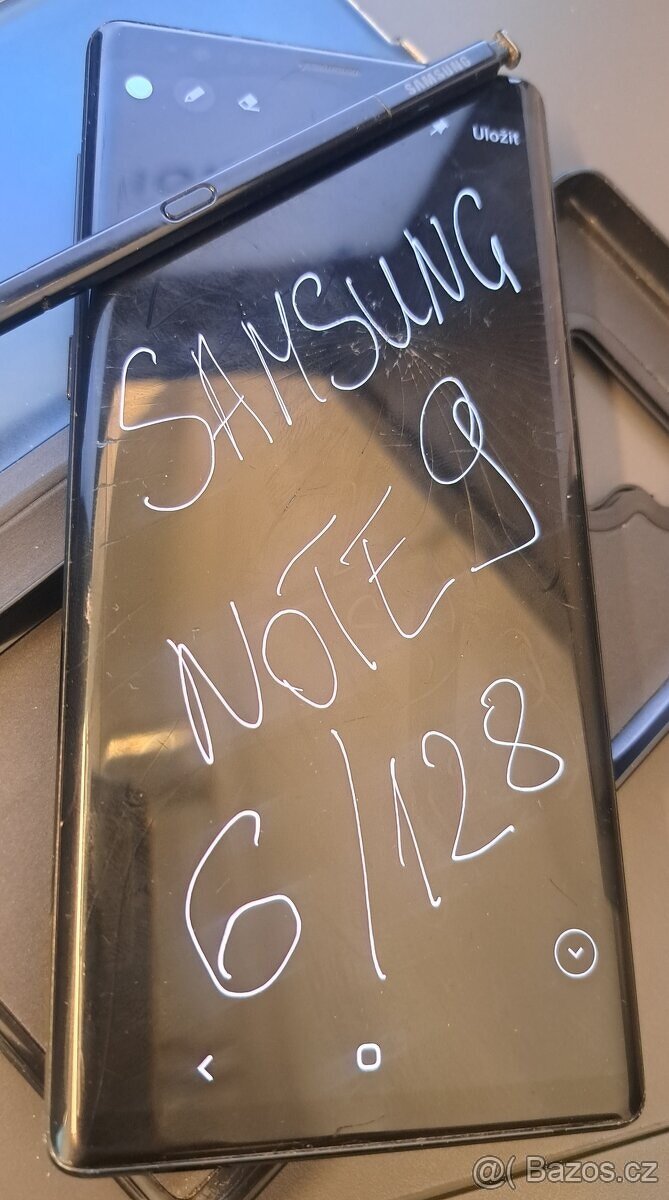 SAMSUNG
Uložit
SAMSUNG
NOTE 9
6/128
@( Bazos.cz